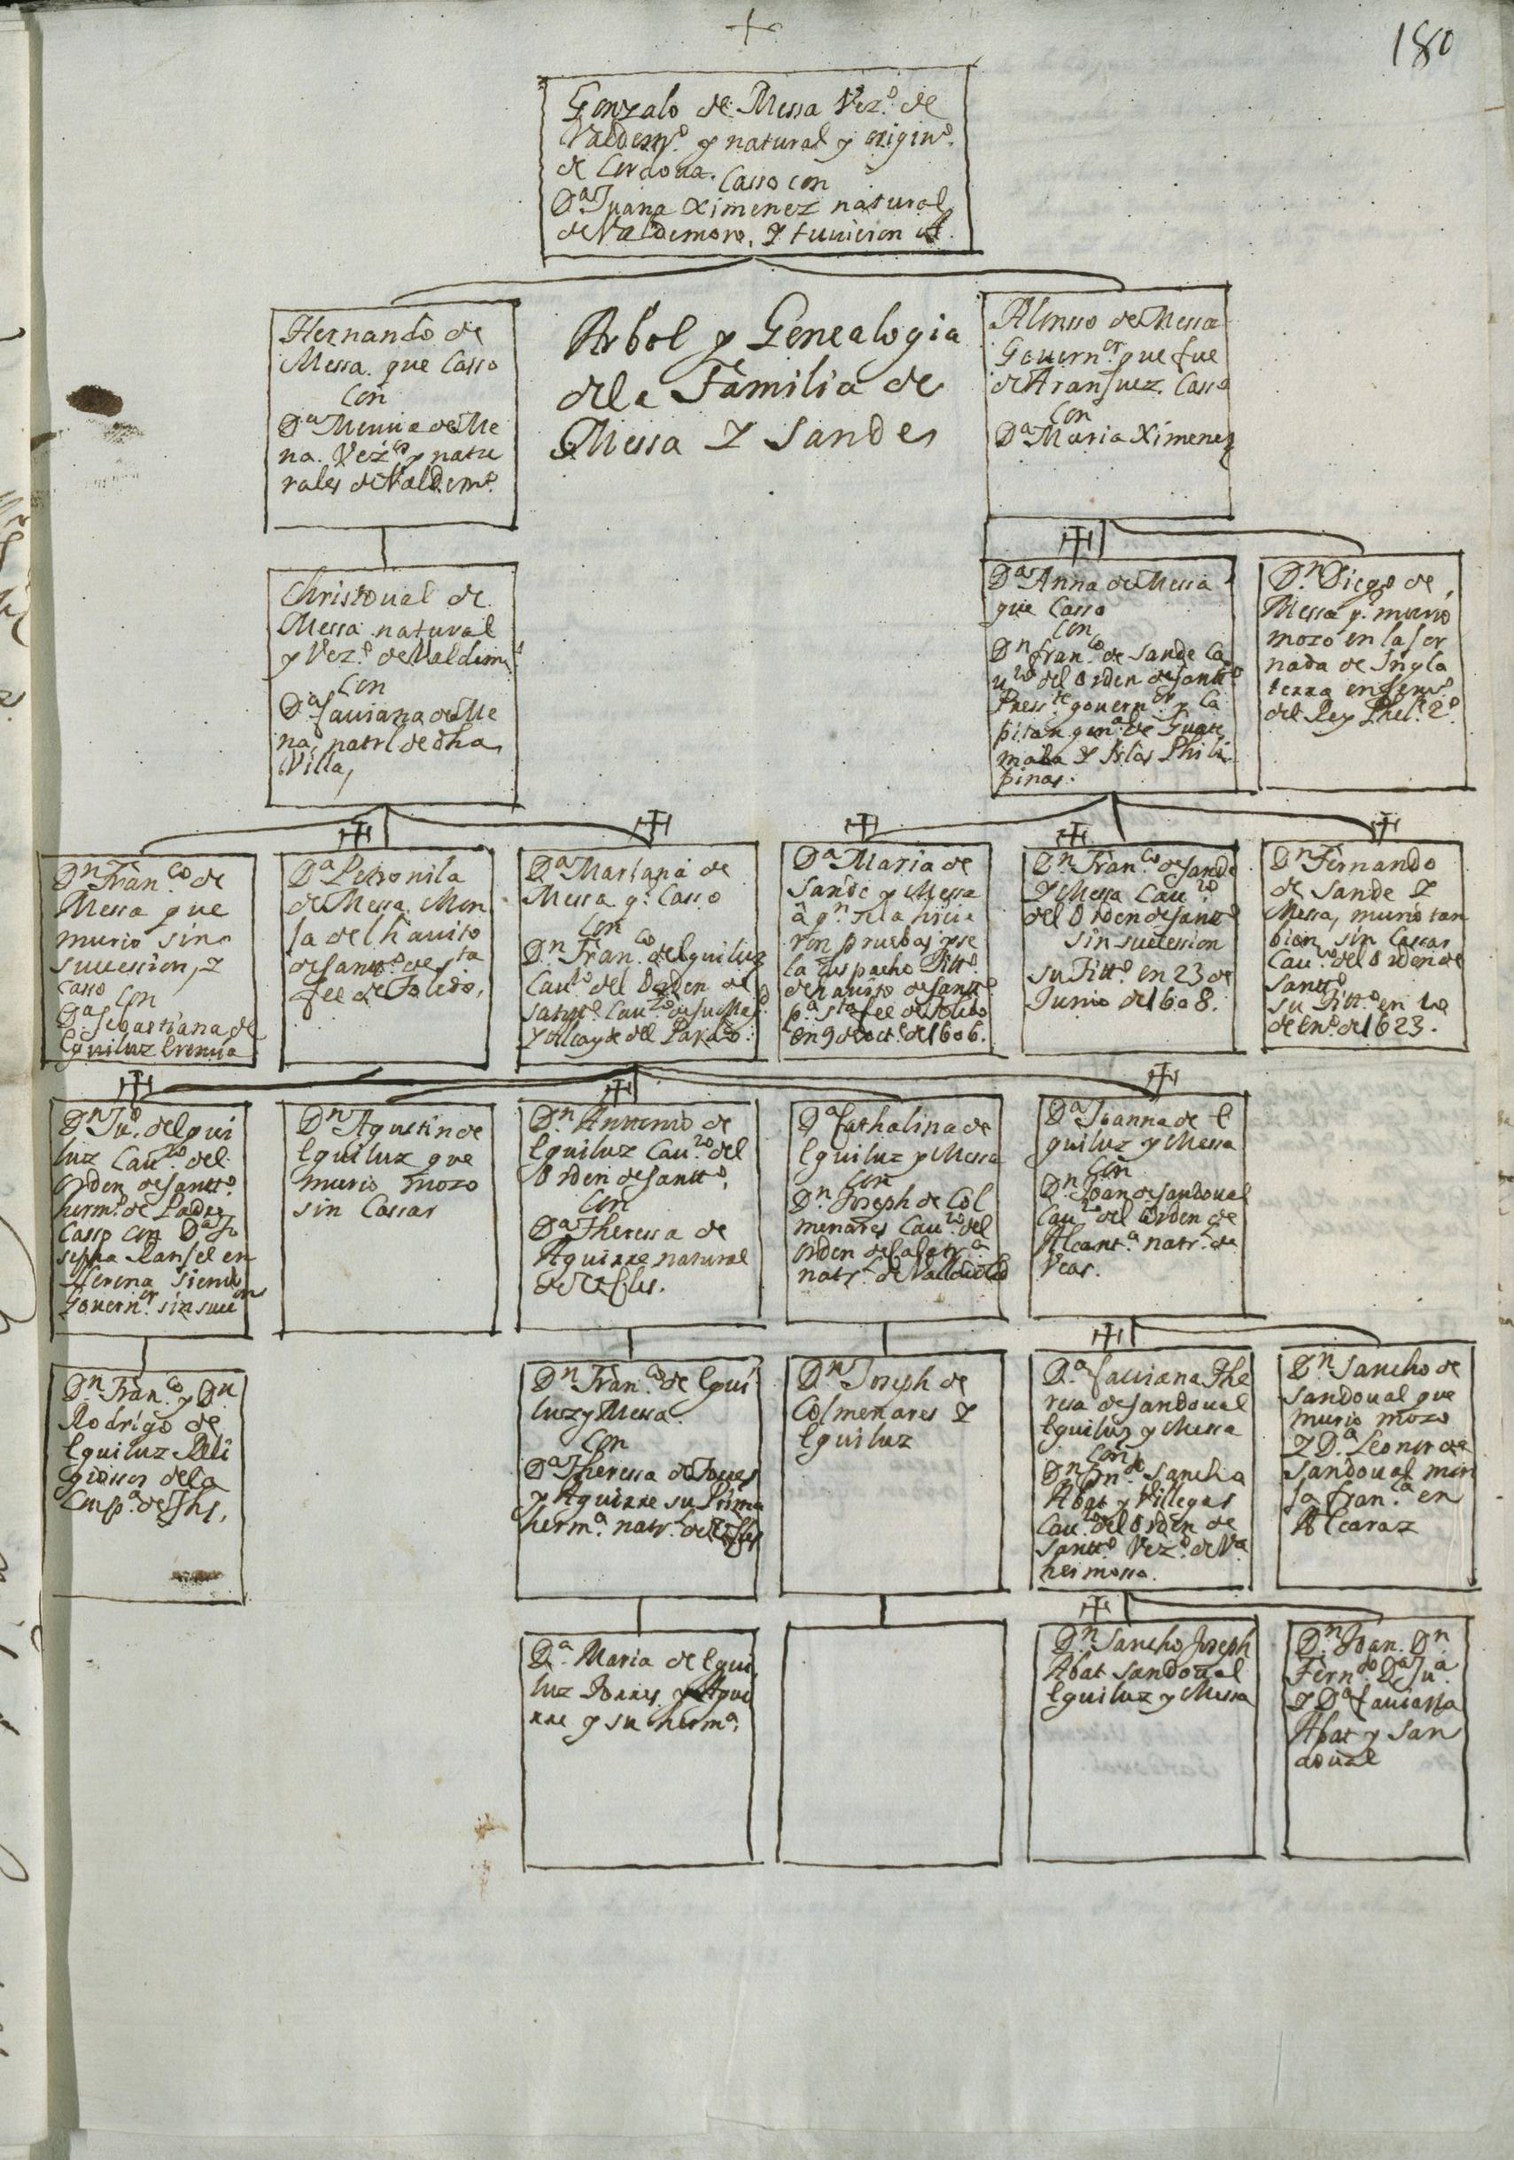 180
Gonzalo de Messa Vez.º de
Valdem.º y natural y origin.º
de Cordoua. Casso con
D.ª Juana Ximenez natural
de Valdemoro, Y tuuieron A
Arbol y Genealogia
dela Familia de
Messa Y Sandes
Hernando de
Messa. que Casso
Con
D.ª Mencia de Me
na. Vez.ºˢ y natu
rales de Valdem.º
Alonsso de Messa
Gouern.ºʳ que fue
de Aranjuez. Casso
Con
D.ª Maria Ximenez
Christoual de
Messa natural
y Vez.º de Valdem.º
Con
D.ª fauiana de Me
na, natrl de dha
Villa,
D.ª Anna de Messa
que Casso
Con
Dⁿ fran.ᶜᵒ de Sande Ca
uʳᵒ del Orden de Santtº
Press.ᵗᵉ gouern.ºʳ y Ca
pitan gen.ˡ de Guate
mala Y Islas Phili
pinas.
D.ⁿ Diego de
Messa q.ᵉ murio
mozo en la Jor
nada de Ingla
terra en seru.º
del Rey Phel.ᵉ 2.º
Dⁿ Fran.ᶜᵒ de
Messa que
murio sin
suuession, Y
Casso Con
D.ª Sebastiana de
Eguiluz
D.ª Petronila
de Messa. Mon
ja del hauito
de Santt.º de Sᵗᵃ
fee de Toledo,
D.ª Mariana de
Messa q.ᵉ Casso
Con
Dⁿ Fran.ᶜᵒ de Eguiluz
Cau.ʳᵒ del Orden de
Santt.º Cau.ʳᵒ de su Mag.ᵈ
Y Alcayde del Pardo.
D.ª Maria de
Sande y Messa
â qⁿ se la hicie
ron pruebas y se
la despacho Titt.º
de hauito de Santt.º
p.ª Sᵗᵃ fee de Toledo
en 9 de oct.ᵉ de 1606.
Dⁿ Fran.ᶜᵒ de Sande
Y Messa Cau.ʳᵒ
del Orden de Santt.º
sin suuession
su Titt.º en 23 de
Junio de 1608.
Dⁿ Fernando
de Sande Y
Messa, murio tan
bien sin Cassar
Cau.ʳᵒ del Orden de
Santt.º
su Titt.º en
de En.º de 1623.
Dⁿ Ju.º de Egui
luz Cau.ʳᵒ del
Orden de Santt.º
herm.º de Padre
Casso con D.ª Jo
sepha Ranjel en
Llerena siendo
Gouern.ºʳ sin suceº
Dⁿ Agustin de
Eguiluz que
murio mozo
sin Cassar
Dⁿ Anttonio de
Eguiluz Cau.ʳᵒ del
Orden de Santt.º,
Con
D.ª Theressa de
Aguirre natural
de
D.ª Cathalina de
Eguiluz y Messa
Con
Dⁿ Joseph de Col
menares Cau.ʳᵒ del
Orden de Calatr.ª
natr.ˡ de Valladolid
D.ª Joanna de E
guiluz y Messa
Con
Dⁿ Joan de Sandoual
Cau.ʳᵒ del Orden de
Alcant.ª natr.ˡ de
Veas.
Dⁿ Fran.ᶜᵒ y Dⁿ
Rodrigo de
Eguiluz Reli
giossos dela
Comp.ª de Jhs,
Dⁿ Fran.ᶜᵒ de Egui
luz y Messa.
Con
D.ª Theressa de Torres
y Aguirre su Prima
herm.ª natr.ˡ de
Dⁿ Joseph de
Colmenares Y
Eguiluz
D.ª fauiana The
resa de Sandoual
Eguiluz y Messa
Con
Dⁿ Sancho
Abat y Villegas
Cau.ʳᵒ del Orden de
Santt.º Vez.º de Vª
hermossa.
Dⁿ Sancho de
Sandoual que
murio mozo
Y D.ª Leonor de
Sandoual mon
ja fran.ᶜᵃ en
Alcaraz
D.ª Maria de Egui
luz Torres y Agui
rre y su herm.ª
Dⁿ Sancho Joseph
Abat Sandoual
Eguiluz y Messa
Dⁿ Joan. Dⁿ
Fern.ᵈᵒ D.ª Ju.ª
Y D.ª fauiana
Abat y San
doual